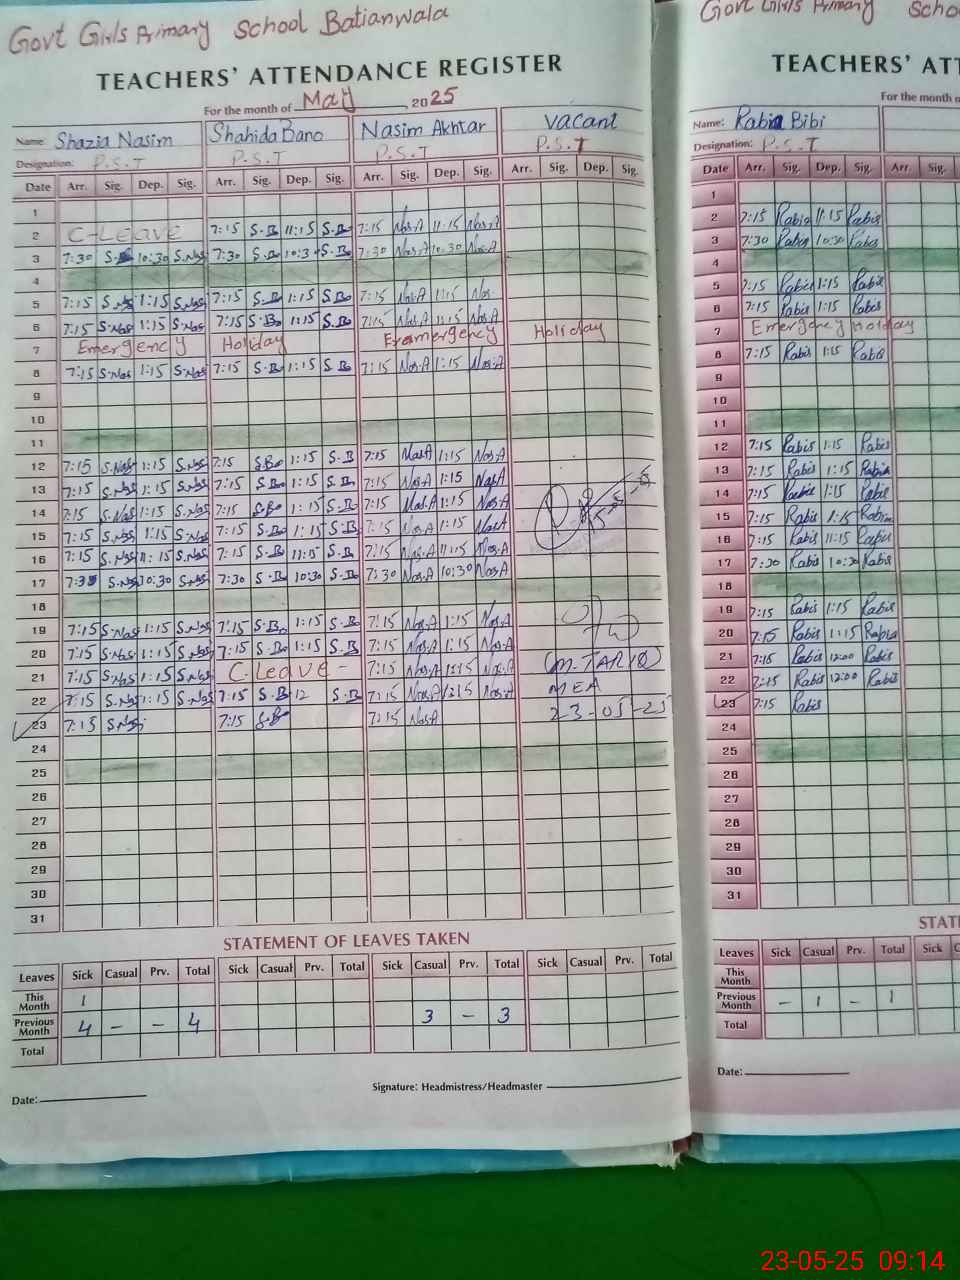 Govt Girls Primary School Batianwala
TEACHERS' ATTENDANCE REGISTER
For the month of May, 2025
Name Shazia Nasim Shahida Bano Nasim Akhtar vacant
Designation: P.S.T P.S.T P.S.T P.S.T
Date Arr. Sig. Dep. Sig. Arr. Sig. Dep. Sig. Arr. Sig. Dep. Sig. Arr. Sig. Dep. Sig.
1
2 C-Leave 7:15 S.B 11:15 S.B 7:15 Nas.A 11:15 Nas.A
3 7:30 10:30 S.Nas 7:30 S.B 10:30 S.B 7:30 Nas.A 10:30 Nas.A
4
5 7:15 S.Nas 1:15 S.Nas 7:15 S.B 1:15 S.B 7:15 Nas.A 1:15
6 7:15 S.Nas 1:15 S.Nas 7:15 S.B 1:15 S.B 7:15 Nas.A 1:15 Nas.A
7 Emergency Holiday Holiday
8 7:15 S.Nas 1:15 S.Nas 7:15 S.B 1:15 S.B 7:15 Nas.A 1:15 Nas.A
9
10
11
12 7:15 S.Nas 1:15 S.Nas 7:15 S.B 1:15 S.B 7:15 Nas.A 1:15 Nas.A
13 7:15 S.Nas 1:15 S.Nas 7:15 S.B 1:15 S.B 7:15 Nas.A 1:15 Nas.A
14 7:15 S.Nas 1:15 S.Nas 7:15 S.B 1:15 S.B 7:15 Nas.A 1:15 Nas.A
15 7:15 S.Nas 1:15 S.Nas 7:15 S.B 1:15 S.B 7:15 Nas.A 1:15 Nas.A
16 7:15 S.Nas 11:15 S.Nas 7:15 S.B 11:15 S.B 7:15 Nas.A 11:15 Nas.A
17 S.Nas 10:30 S.Nas 7:30 S.B 10:30 S.B 7:30 Nas.A 10:30 Nas.A
18
19 7:15 S.Nas 1:15 S.Nas 7:15 S.B 1:15 S.B 7:15 Nas.A 1:15 Nas.A
20 7:15 S.Nas 1:15 S.Nas 7:15 S.B 1:15 S.B 7:15 Nas.A 1:15 Nas.A
21 7:15 S.Nas 1:15 S.Nas C.Leave - 7:15 Nas.A 1:15 Nas.A (M.TARIQ)
22 7:15 S.Nas 1:15 S.Nas 7:15 S.B 12 S.B 7:15 Nas.A 1:15 Nas.A MEA
23 7:15 S.Nas 7:15 S.B 7:15 Nas.A 23-05-25
24
25
26
27
28
29
30
31
STATEMENT OF LEAVES TAKEN
Leaves Sick Casual Prv. Total Sick Casual Prv. Total Sick Casual Prv. Total Sick Casual Prv. Total
This Month 1
Previous Month 4 - - 4 3 - 3
Total
Date:
Signature: Headmistress/Headmaster
Govt Girls Primary Scho
TEACHERS' ATT
For the month o
Name: Rabia Bibi
Designation: P.S.T
Date Arr. Sig. Dep. Sig. Arr. Sig.
1
2 7:15 Rabia 11:15 Rabia
3 7:30 Rabia 10:30 Rabia
4
5 7:15 Rabia 1:15 Rabia
6 7:15 Rabia 1:15 Rabia
7 Emergency Holiday
8 7:15 Rabia 1:15 Rabia
9
10
11
12 7:15 Rabia 1:15 Rabia
13 7:15 Rabia 1:15 Rabia
14 7:15 Rabia 1:15 Rabia
15 7:15 Rabia 1:15 Rabia
16 7:15 Rabia 11:15 Rabia
17 7:30 Rabia 10:30 Rabia
18
19 7:15 Rabia 1:15 Rabia
20 7:15 Rabia 1:15 Rabia
21 7:15 Rabia 12:00 Rabia
22 7:15 Rabia 12:00 Rabia
23 7:15 Rabia
24
25
26
27
28
29
30
31
STAT
Leaves Sick Casual Prv. Total Sick C
This Month
Previous Month - 1 - 1
Total
Date:
23-05-25 09:14